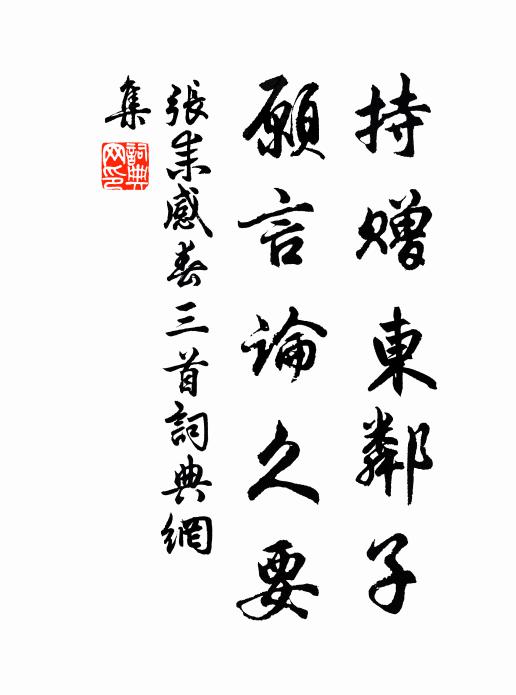 持贈東鄰子
願言論久要
張耒感春三首詞典網
集
詞典
网印